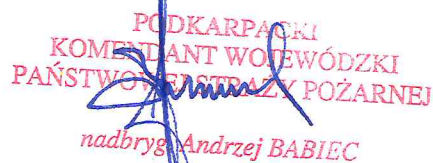 PODKARPACKI
KOMENDANT WOJEWÓDZKI
PAŃSTWOWEJ STRAŻY POŻARNEJ
nadbryg. Andrzej BABIEC